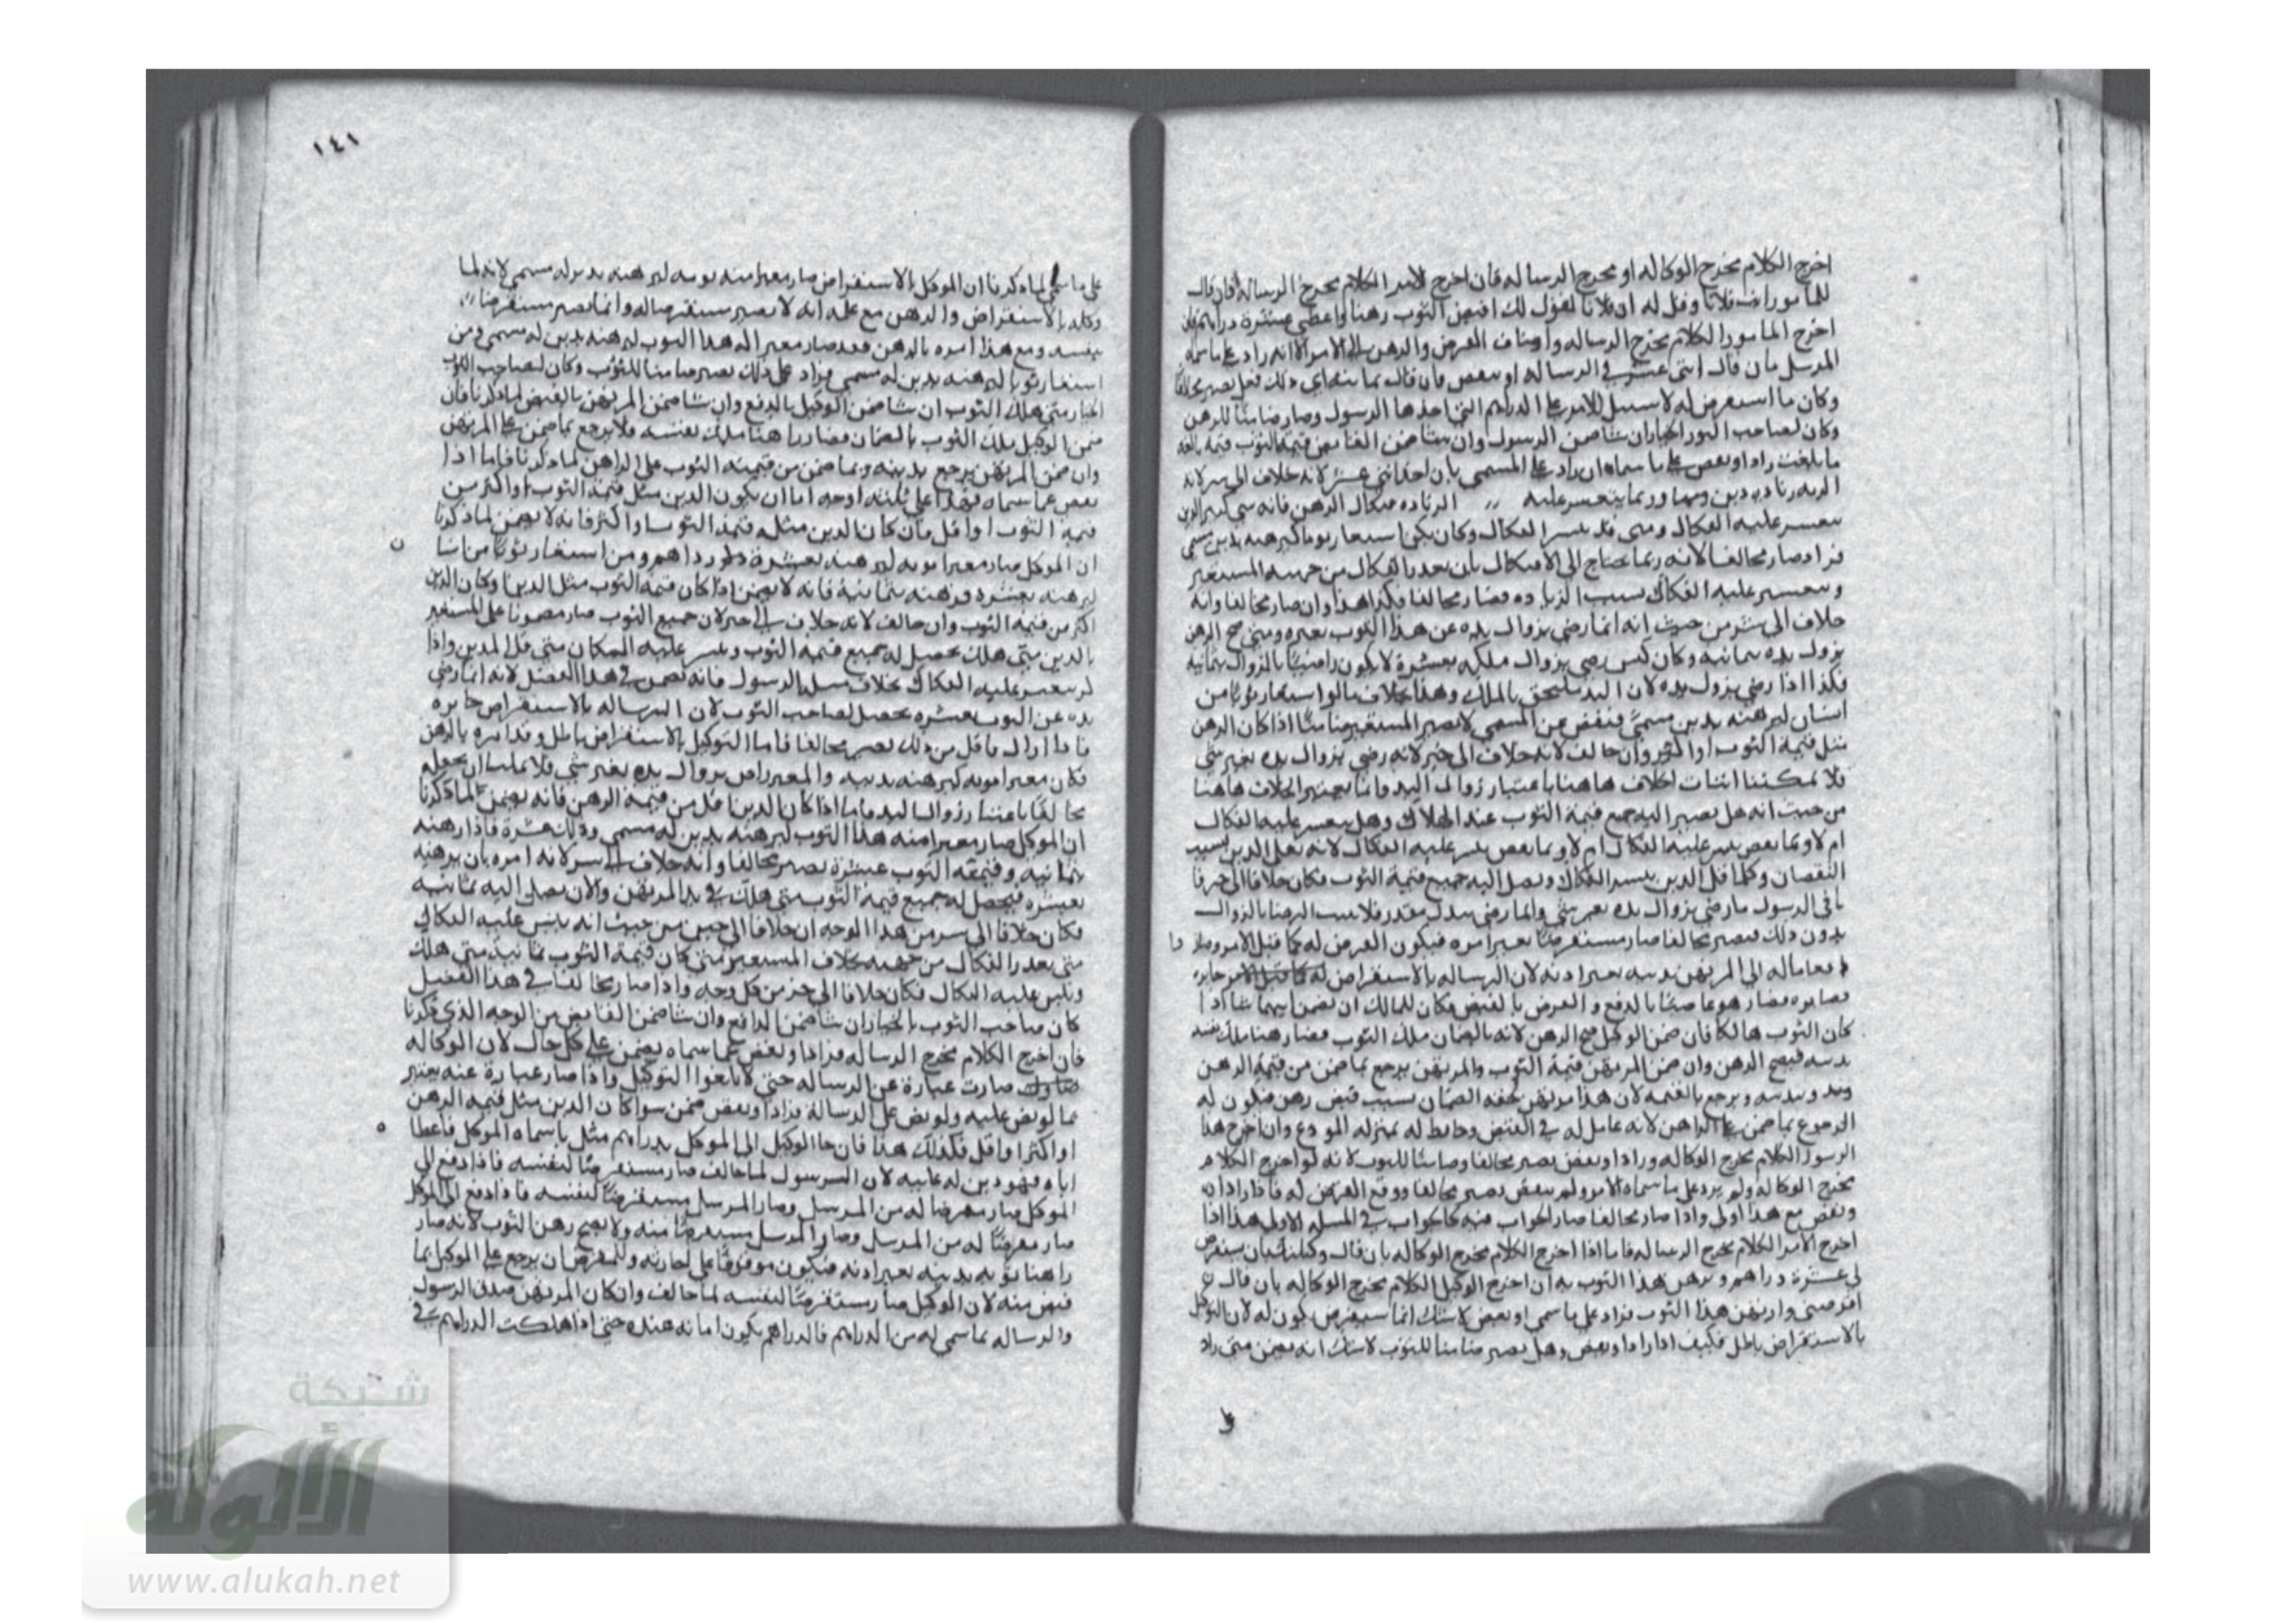 اخرج الكلام مخرج الوكاله او مخرج الرساله فان اخرج الامر الكلام مخرج الرساله فان قال
للمامور ائت فلانا وقل له ان فلانا يقول لك اقبض الثوب رهنا واعطي عشرة دراهم فان
اخرج المامور الكلام مخرج الرساله واضاف القرض والرهن الى الامر الا انه زاد على ما سماه
المرسل بان قال اثنى عشر في الرساله او نقص فان قال ثمانيه اي ذلك فعل يصير مخالفا
وكان ما استقرض له لا سبيل للامر على الدراهم التي اخذها الرسول وصار ضامنا للرهن
وكان لصاحب الثوب الخيار ان شا ضمن الرسول وان شا ضمن القابض قيمة الثوب قيمه بالغه
ما بلغت زاد او نقص على ما سماه ان زاد على المسمى بان اخذ اثني عشر لانه خلاف الى شر لانه
يتعسر عليه الفكاك
فزاد صار مخالفا لانه ربما يحتاج الى الافتكاك بان تعذر الفكاك من جهة المستعير
ويتعسر عليه الفكاك بسبب الزياده فصار مخالفا فكذا هذا وان صار مخالفا وانه
خلاف الى شر من حيث انه انما رضي بزوال يده عن هذا الثوب بعشره ومتى صح الرهن
يزول يده بثمانيه وكان كمن رضي بزوال ملكه بعشرة لا يكون راضيا بالزوال بثمانيه
فكذا اذا رضي بزول يده لان اليد ملحق بالملك وهذا بخلاف ما لو استعار ثوبا من
انسان ليرهنه بدين مسمى فنقص عن المسمى لا يصير المستعير ضامنا اذا كان الرهن
مثل قيمة الثوب او اكثر وان خالف لانه خلاف الى خير لانه رضي بزوال يده بغير شي
فلا يمكننا اثبات الخلاف هاهنا باعتبار زوال اليد وانما يعتبر الخلاف هاهنا
من حيث انه هل يصير اليه جميع قيمة الثوب عند الهلاك وهل يتعسر عليه الفكاك
ام لا
النقصان وكلما قل الدين يتيسر الفكاك ويصل اليه جميع قيمة الثوب فكان خلافا الى خير فا
ما في الرسول ما رضي بزوال يده بغير شي وانما رضي ببدل مقدر فلا يثبت الرضا بالزوال
بدون ذلك فيصير مخالفا صار مستقرضا بغير امره فيكون القرض له كما قبل الامر
الى المرتهن بدينه بغير اذنه لان الرساله بالاستقراض جايزه
بالدفع و القرض بالقبض فكان للمالك ان يضمن ايهما شا اذا
كان الثوب هالكا فان ضمن الوكيل صح الرهن لانه بالضمان ملك الثوب فصار رهنا ملك نفسه
بدينه فيصح الرهن وان ضمن المرتهن قيمة الثوب والمرتهن يرجع بما ضمن من قيمة الرهن
وبدينه ويرجع بالقيمه لان هذا مرتهن لحقه الضمان بسبب قبض رهن فيكون له
الرجوع بما ضمن على الراهن لانه عامل له في القبض وحافظ له بمنزله المودع وان اخرج هذا
الرسول الكلام مخرج الوكاله وزاد او نقص يصير مخالفا وضامنا للثوب لانه لو اخرج الكلام
مخرج الوكاله ولم يزد على ما سماه الامر ولم ينقص يصير مخالفا ووقع القرض له فاذا زاد ان
ونقص مع هذا اولى واذا صار مخالفا صار الجواب فيه كالجواب في المسله الاولى هذا اذا
اخرج الامر الكلام مخرج الرساله فاما اذا اخرج الكلام مخرج الوكاله بان قال وكلتك بان يستقرض
لي عشرة دراهم ويرهن هذا الثوب به ان اخرج الوكيل الكلام مخرج الوكاله بان قال
اقرضني وارتهن هذا الثوب فزاد على ما سمى او نقص لا شك انما يستقرض يكون له لان التوكيل
بالاستقراض باطل فكيف اذا زاد او نقص وهل يصير ضامنا للثوب لا شك انه يضمن متى زاد
١٤١
على ما سمى لما ذكرنا ان الموكل بالاستقراض صار معيرا منه ثوبه ليرهنه بدين له مسمى لانه لما
وكله بالاستقراض والرهن مع علمه انه لا يصير مستقرضا له وانما يصير مستقرضا
بنفسه ومع هذا امره بالرهن فقد صار معيرا له هذا الثوب ليرهنه بدين له مسمى ومن
استعار ثوبا ليرهنه بدين له مسمى فزاد على ذلك يصير ضامنا للثوب وكان لصاحب الثوب
الخيار متى هلك الثوب ان شا ضمن الوكيل بالدفع وان شا ضمن المرتهن بالقبض لما ذكرنا فان
ضمن الوكيل ملك الثوب بالضمان فصار راهنا ملك نفسه فلا يرجع بما ضمن على المرتهن
وان ضمن المرتهن يرجع بدينه وبما ضمن من قيمة الثوب على الراهن لما ذكرنا فاما اذا
نقص عما سماه فهذا على ثلثة اوجه اما ان يكون الدين مثل قيمة الثوب او اكثر من
قيمة الثوب او اقل فان كان الدين مثل قيمة الثوب او اكثر فانه لا يضمن لما ذكرنا
ان الموكل صار معيرا ثوبه ليرهنه بعشرة دراهم ومن استعار ثوبا من انسان
ليرهنه بعشره فرهنه بثمانية فانه لا يضمن اذا كان قيمة الثوب مثل الدين او كان الدين
اكثر من قيمة الثوب وان خالف لانه خلاف الى خير لان جميع الثوب صار مضمونا على المستعير
بالدين متى هلك يحصل له جميع قيمة الثوب
بخلاف مسله الرسول فانه يضمن في هذا الفصل لانه انما رضي
يده عن الثوب بعشره يحصل لصاحب الثوب لان الرساله بالاستقراض جايزه
فاذا ازال باقل من ذلك يصير مخالفا فاما التوكيل بالاستقراض باطل وقد امره بالرهن
فكان معيرا ثوبه ليرهنه بدينه والمعير راض بزوال يده بغير شي فلا يمكننا ان نجعله
مخالفا باعتبار زوال اليد فاما اذا كان الدين اقل من قيمة الرهن فانه يضمن لما ذكرنا
ان الموكل صار معيرا منه هذا الثوب ليرهنه بدين له مسمى وذلك عشرة فاذا رهنه
بثمانيه وقيمة الثوب عشرة يصير مخالفا وانه خلاف الى شر لانه امره بان يرهنه
بعشره فيحصل له جميع قيمة الثوب متى هلك في يد المرتهن والان يصل اليه ثمانيه
فكان خلافا الى شر من هذا الوجه ان خلافا الى خير من حيث انه يتيسر عليه الفكاك
متى تعذر الفكاك من جهته بخلاف المستعير متى كان قيمة الثوب ثمانية متى هلك
ويتيسر عليه الفكاك فكان خلافا الى خير من كل وجه واذا صار مخالفا في هذا الفصل
كان صاحب الثوب بالخيار ان شا ضمن الدافع وان شا ضمن القابض من الوجه الذي ذكرنا
فان اخرج الكلام مخرج الرساله فزاد او نقص عما سماه يضمن على كل حال لان الوكاله
صارت عبارة عن الرساله حتى لا يلغوا التوكيل واذا صار عبارة عنه يعتبر
بما لو نص عليه ولو نص على الرسالة فزاد او نقص ضمن سوا كان الدين مثل قيمة الرهن
او اكثر او اقل فكذلك هذا فان جا الوكيل الى الموكل بدراهم مثل ما سماه الموكل فاعطا
اياه فهو دين له عليه لان الرسول لما خالف صار مستقرضا لنفسه فاذا دفع الى
الموكل صار مقرضا له من المرسل وصار المرسل مستقرضا لنفسه فاذا دفع الى الموكل
صار مقرضا له من المرسل وصار المرسل مستقرضا منه ولا يصح رهن الثوب لانه صار
راهنا ثوبه بدينه بغير اذنه فيكون موقوفا على اجازته وللمقرض ان يرجع على الموكيل بما
قبض منه لان الوكيل صار مستقرضا لنفسه لما خالف وان كان المرتهن صدق الرسول
والرساله بما سمى له من الدراهم فالدراهم يكون امانه عنده حتى اذا هلكت الدراهم في
شبكة
الألوكة
www.alukah.net